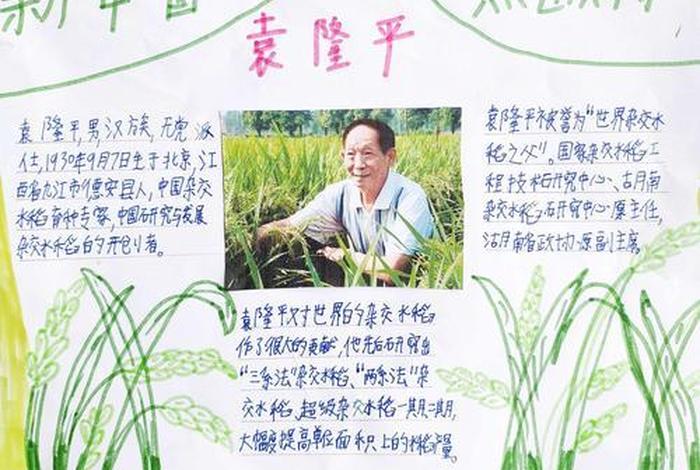 新中国
袁隆平
袁隆平,男汉族,无党派
仕,1930年9月7日生于北京,江
西省九江市德安县人,中国杂交
水稻育种专家,中国研究与发展
杂交水稻的开创者。
袁隆平被誉为"世界杂交水
稻之父"。国家杂交水稻工
程技术研究中心、湖南
杂交水稻研究中心原主任,
湖南省政协原副主席。
袁隆平对世界的杂交水稻
作了很大的贡献,他先后研究出
"三系法"杂交水稻、"两系法"杂
交水稻、超级杂交水稻一期二期,
大幅度提高单位面积上的稻量。